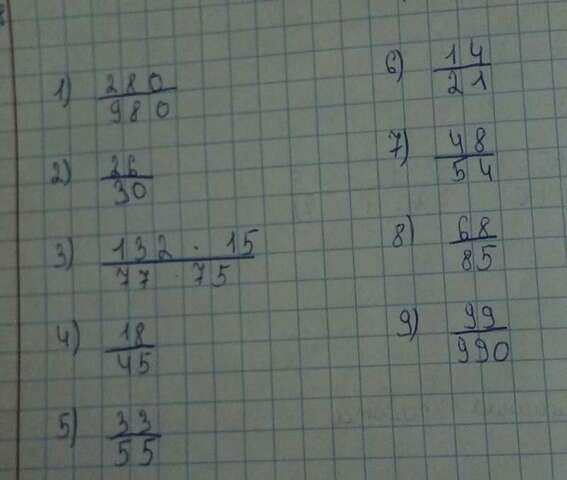 1) 280/980
2) 26/30
3) 132 · 15/77 · 75
4) 18/45
5) 33/55
6) 14/21
7) 48/54
8) 68/85
9) 99/990